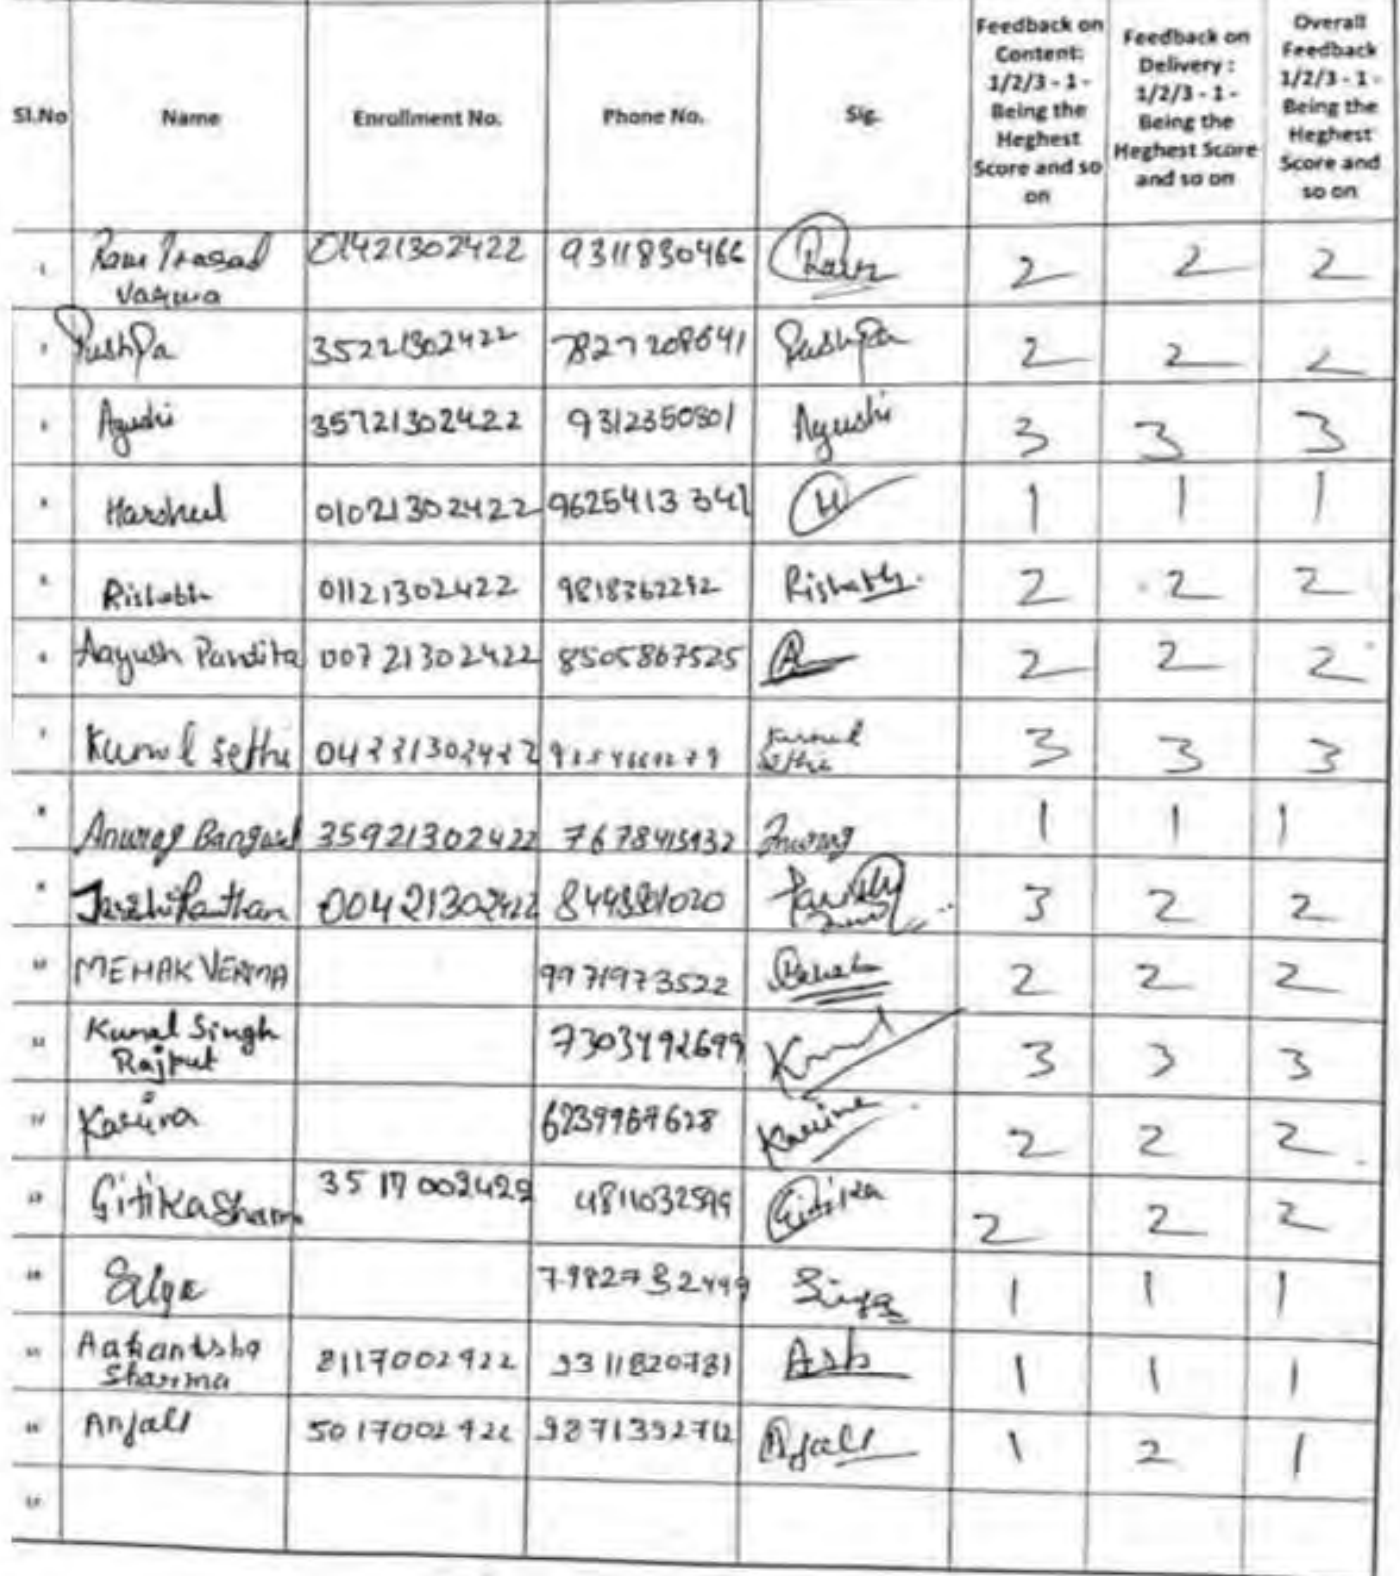 Sl.No Name Enrollment No. Phone No. Sig. Feedback on Content: 1/2/3 - 1 - Being the Heghest Score and so on Feedback on Delivery : 1/2/3 - 1 - Being the Heghest Score and so on Overall Feedback 1/2/3 - 1 - Being the Heghest Score and so on
1 Ram Prasad Varma 01421302422 9311830466 2 2 2
2 Pushpa 35221302422 7827208641 Pushpa 2 2 2
3 Ayushi 35721302422 9312350801 Ayushi 3 3 3
4 Harsheel 01021302422 9625413341 H 1 1 1
5 Rishabh 01121302422 9818362292 Rishabh 2 2 2
6 Aayush Pandita 00721302422 8505867525 A 2 2 2
7 Kunal Sethi Kunal Sethi 3 3 3
8 Anurag 35921302422 Anurag 1 1 1
9 00421302422 3 2 2
10 MEHAK VERMA 9971973522 Mehak 2 2 2
11 Kunal Singh Rajput 7303492699 Kunal 3 3 3
12 2 2 2
13 Gitika Sharma Gitika 2 2 2
14 7982732499 1 1 1
15 Aakanksha Sharma 9311820781 1 1 1
16 Anjali Anjali 1 2 1
17